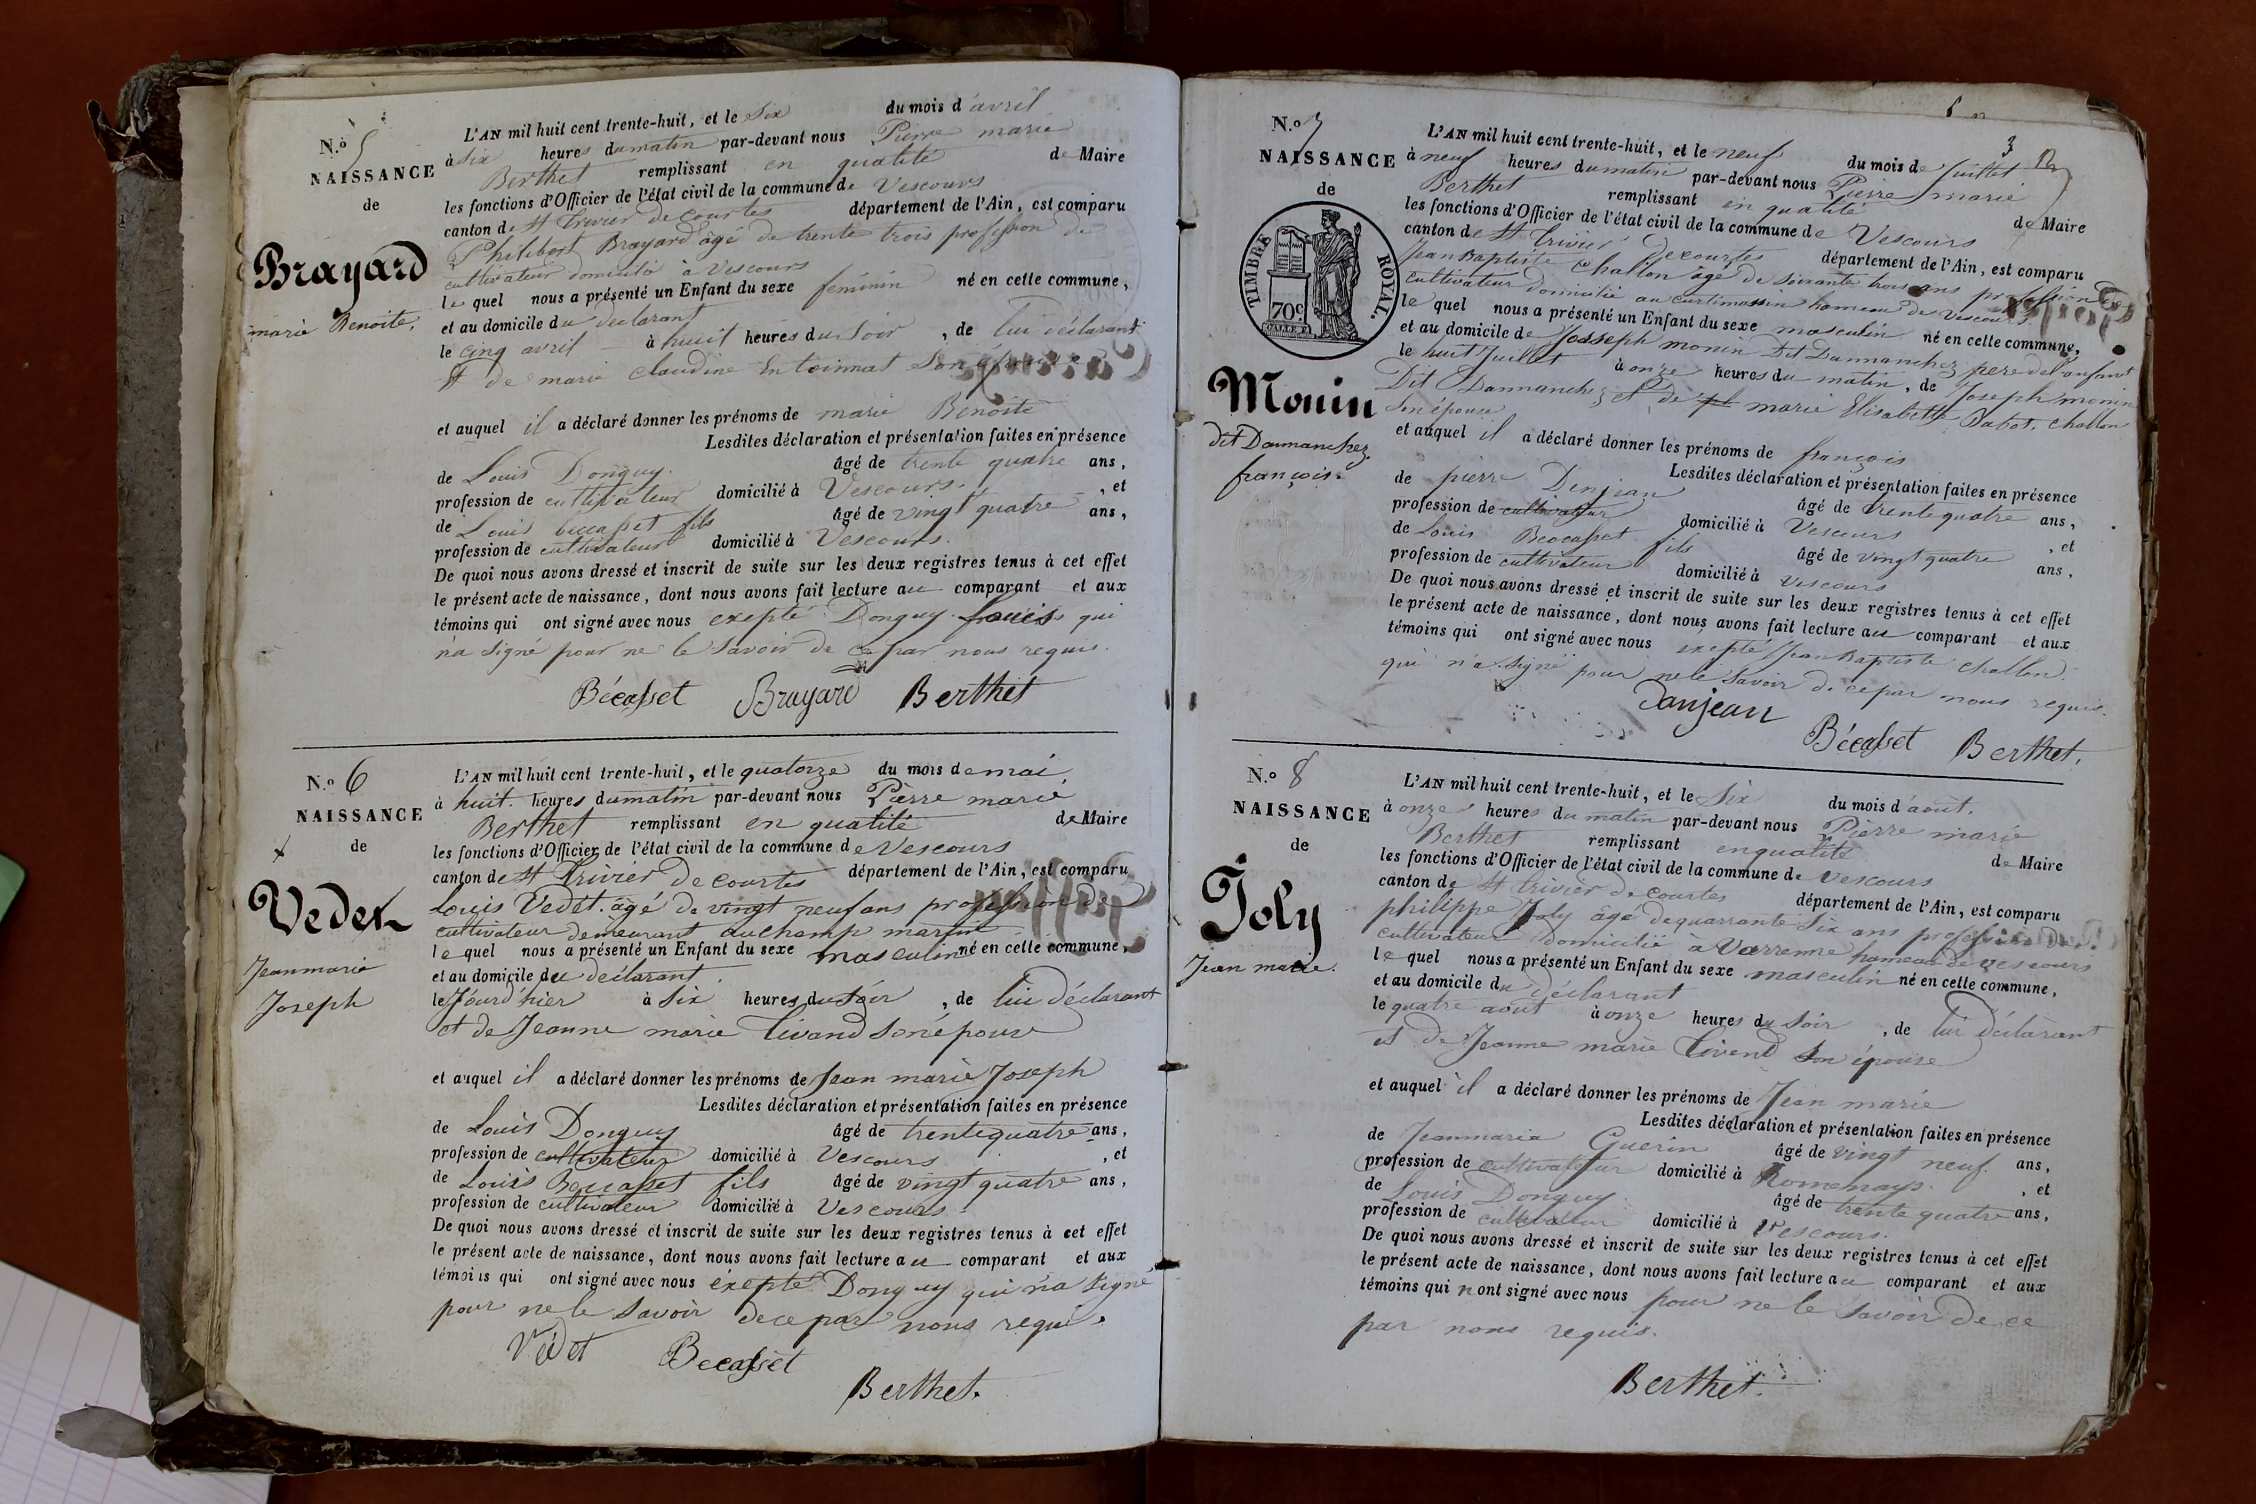 N.o 5
NAISSANCE
de
Brayard
marie Benoite.
L'AN mil huit cent trente-huit, et le six du mois d'avril
à six heures du matin par-devant nous Pierre marie
Berthet remplissant en qualité de Maire
les fonctions d'Officier de l'état civil de la commune de Vescours
canton de St trivier de courtes département de l'Ain, est comparu
Philibert Brayard âgé de trente trois profession de
cultivateur domicilié à Vescours
le quel nous a présenté un Enfant du sexe féminin né en cette commune,
et au domicile du declarant
le cinq avril à huit heures du Soir, de lui déclarant
et de marie claudine Son épouse
et auquel il a déclaré donner les prénoms de marie Benoite
Lesdites déclaration et présentation faites en présence
de Louis Donguy. âgé de trente quatre ans,
profession de cultivateur domicilié à Vescours. , et
de Louis beccasset fils âgé de vingt quatre ans,
profession de cultivateur domicilié à Vescours.
De quoi nous avons dressé et inscrit de suite sur les deux registres tenus à cet effet
le présent acte de naissance, dont nous avons fait lecture au comparant et aux
témoins qui ont signé avec nous exepté Donguy Louis qui
n'a signé pour ne le savoir de ce par nous requis.
Bécasset Brayard Berthet
N.o 6
NAISSANCE
de
Vedet
Jeanmarie
Joseph
L'AN mil huit cent trente-huit, et le quatorze du mois de mai,
à huit. heures du matin par-devant nous Pierre marie
Berthet remplissant en qualité de Maire
les fonctions d'Officier de l'état civil de la commune de Vescours
canton de St trivier De courtes département de l'Ain, est comparu
Louis Vedet. âgé de vingt neuf ans profession de
cultivateur demeurant au champ martin
le quel nous a présenté un Enfant du sexe masculin né en cette commune,
et au domicile du declarant
le Jourd'hier à six heures du Soir, de lui déclarant
et de Jeanne marie tivand son épouse
et auquel il a déclaré donner les prénoms de Jean marie Joseph
Lesdites déclaration et présentation faites en présence
de Louis Donguy âgé de trente quatre ans,
profession de cultivateur domicilié à Vescours , et
de Louis Beccasset fils âgé de vingt quatre ans,
profession de cultivateur domicilié à Vescours
De quoi nous avons dressé et inscrit de suite sur les deux registres tenus à cet effet
le présent acte de naissance, dont nous avons fait lecture au comparant et aux
témoins qui ont signé avec nous exepté Donguy qui n'a signé
pour ne le savoir de ce par nous requi.
Védet Becasset
Berthet.
3
N.o 7
NAISSANCE
de
TIMBRE ROYAL.
70c.
Monin
dit Dannanchez.
françois.
L'AN mil huit cent trente-huit, et le neuf du mois de Juillet
à neuf heures du matin par-devant nous Pierre marie
Berthet remplissant en qualité de Maire
les fonctions d'Officier de l'état civil de la commune de Vescours
canton de St trivier de courtes département de l'Ain, est comparu
Jean Baptiste Challon âgé de soixante trois ans profession de
cultivateur domicilié au hameau de Vescours
le quel nous a présenté un Enfant du sexe masculin né en cette commune,
et au domicile de Josseph monin Dit Dannanchez pere de l'enfant
le huit Juillet à onze heures du matin, de Joseph monin
Dit Dannanchez et de marie Elisabeth Challon
Son épouse
et auquel il a déclaré donner les prénoms de françois
Lesdites déclaration et présentation faites en présence
de pierre Denjean âgé de trente quatre ans,
profession de cultivateur domicilié à Vescours , et
de Louis Beccasset fils âgé de vingt quatre ans,
profession de cultivateur domicilié à Vescours
De quoi nous avons dressé et inscrit de suite sur les deux registres tenus à cet effet
le présent acte de naissance, dont nous avons fait lecture au comparant et aux
témoins qui ont signé avec nous exepté Jean Baptiste Challon
qui n'a signé pour ne le savoir de ce par nous requis.
Danjean
Bécasset Berthet.
N.o 8
NAISSANCE
de
Joly
Jean marie.
L'AN mil huit cent trente-huit, et le Six du mois d'août.
à onze heures du matin par-devant nous Pierre marie
Berthet remplissant en qualité de Maire
les fonctions d'Officier de l'état civil de la commune de Vescours
canton de St trivier de courtes département de l'Ain, est comparu
philippe Joly âgé de quarrante Six ans profession de
cultivateur domicilié a Varrenne hameau de Vescours
le quel nous a présenté un Enfant du sexe masculin né en cette commune,
et au domicile du déclarant
le quatre aout à onze heures du Soir, de lui déclarant
et de Jeanne marie tivend Son épouse
et auquel il a déclaré donner les prénoms de Jean marie
Lesdites déclaration et présentation faites en présence
de Jeanmaria Guerin âgé de vingt neuf. ans,
profession de cultivateur domicilié à Romenays. , et
de Louis Donguy. âgé de trente quatre ans,
profession de cultivateur domicilié à Vescours.
De quoi nous avons dressé et inscrit de suite sur les deux registres tenus à cet effet
le présent acte de naissance, dont nous avons fait lecture au comparant et aux
témoins qui n ont signé avec nous pour ne le savoir de ce
par nous requis.
Berthet.